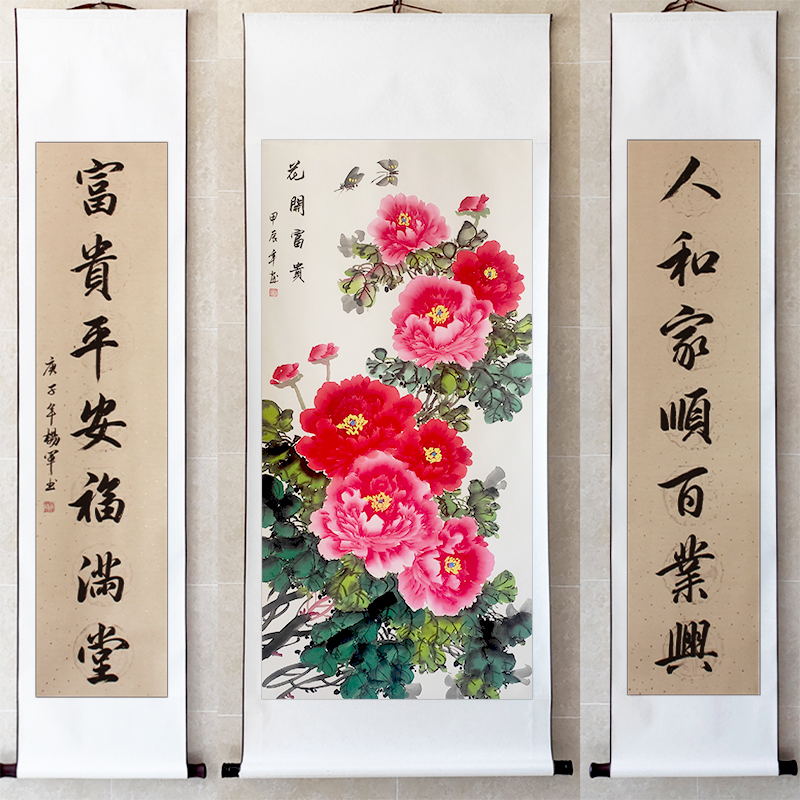 人和家順百業興
花開富貴
甲辰年画
富貴平安福滿堂
庚子年楊軍书